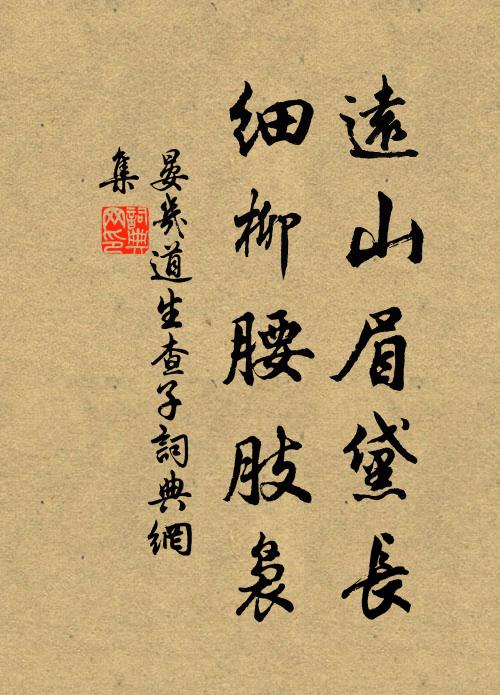 遠山眉黛長
細柳腰肢裊
晏幾道生查子詞典網
集
詞典网印